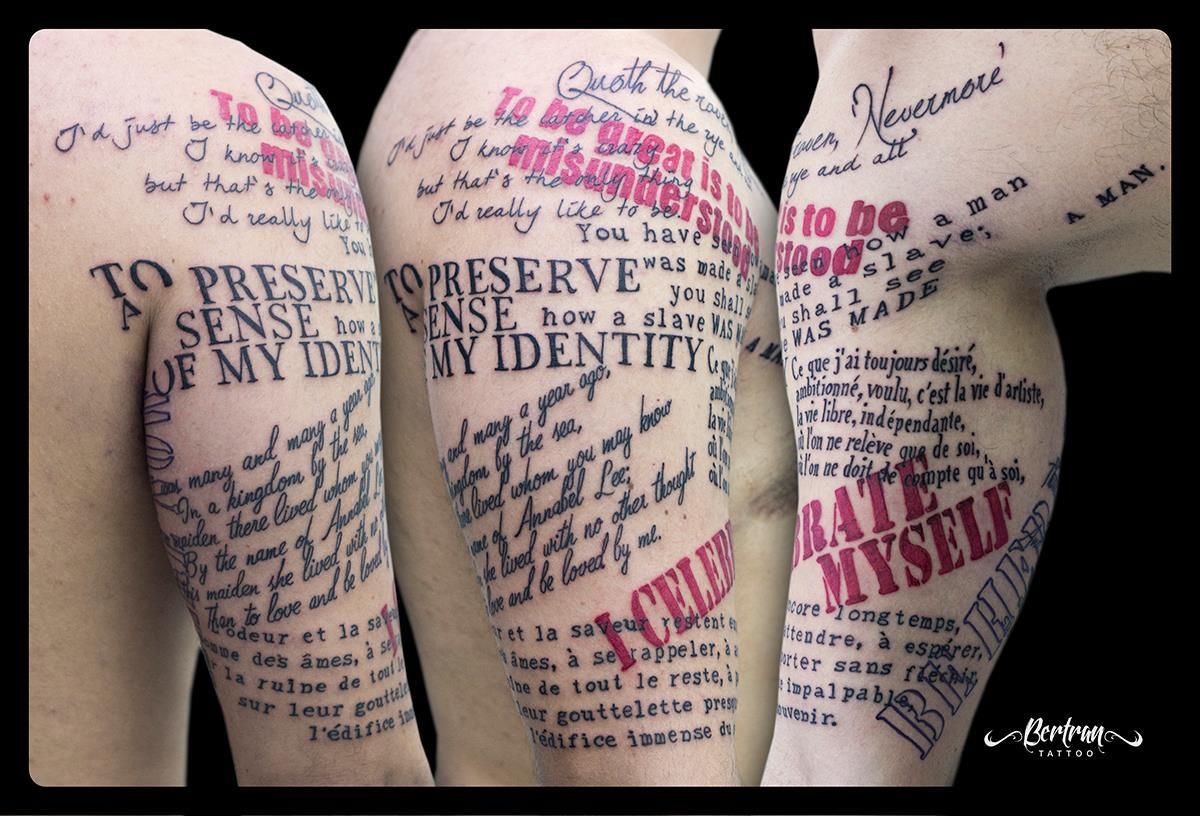 Quoth
To be g
I'd just be the catcher in
I know it's
misun
but that's the only
I'd really like to
You
TO PRESERVE
A SENSE how a
OF MY IDENT
many and many a year ago
In a kingdom by the sea,
maiden there lived whom you
By the name of Annabel
this maiden she lived with no
Than to love and be loved
I
L'odeur et la sa
mme des âmes, à se
la ruine de tou
sur leur gouttele
l'édifice im
Quoth the raven
To be great is to be
I'd just be the catcher in the rye and
I know it's crazy
misunderstood
but that's the only thing
I'd really like to be
You have seen
TO PRESERVE was made a
A you shall s
ENSE how a slave WAS M
MY IDENTITY
A MAN
Ce que j'
and many a year ago,
ingdom by the sea,
lived whom you may know
me of Annabel Lee;
she lived with no other thought
love and be loved by me.
I CELEB
r et la saveur restent e
âmes, à se rappeler, à
ine de tout le reste, à
leur gouttelette presq
l'édifice immense du
raven, Nevermore'
rye and all
is to be
stood
seen how a man
made a slave;
shall see
WAS MADE
A MAN.
Ce que j'ai toujours désiré,
ambitionné, voulu, c'est la vie d'artiste,
la vie libre, indépendante,
où l'on ne relève que de soi,
où l'on ne doit de compte qu'à soi,
BRATE
MYSELF
ncore longtemps,
ttendre, à espérer,
orter sans fléchir,
impalpable
ouvenir.
Bertran
TATTOO